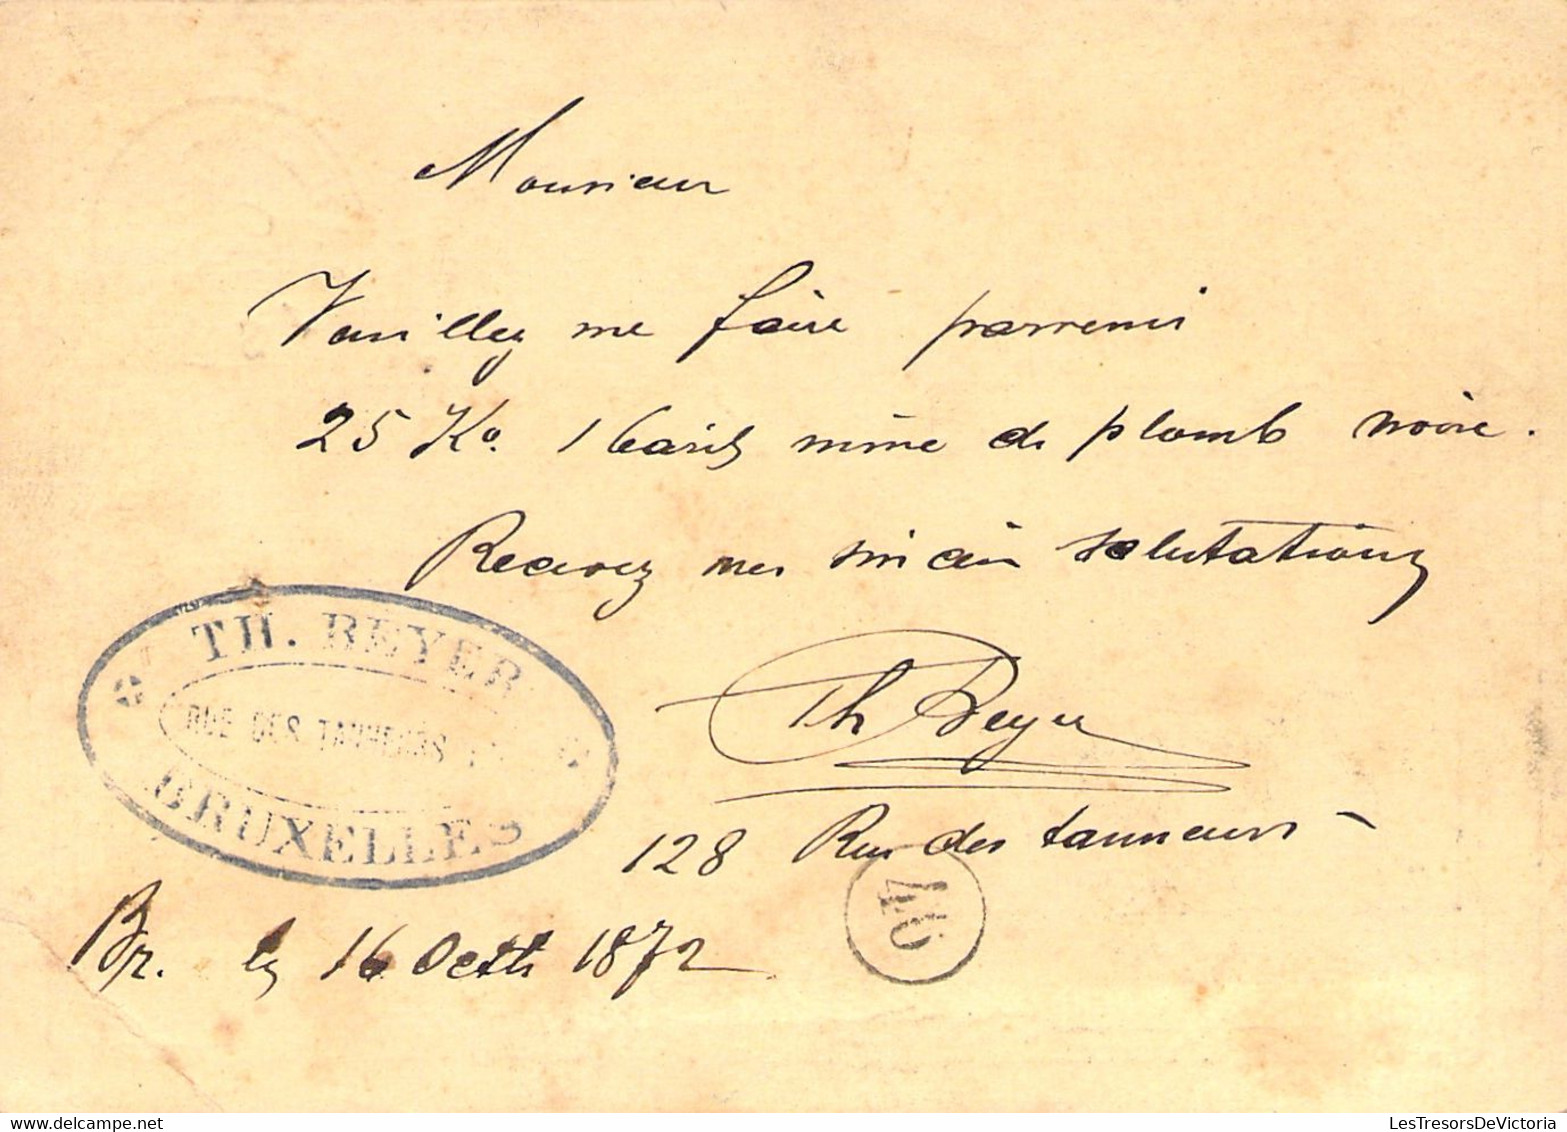 Monsieur
Veuillez me faire parvenir
25 Ko. 1 baril mine de plomb noire.
Recevez mes sincères salutations
TH. BEYER
RUE DES TANNEURS
BRUXELLES
Th Beyer
128 Rue des tanneurs -
46
Br. le 16 Octb 1872
LesTresorsDeVictoria